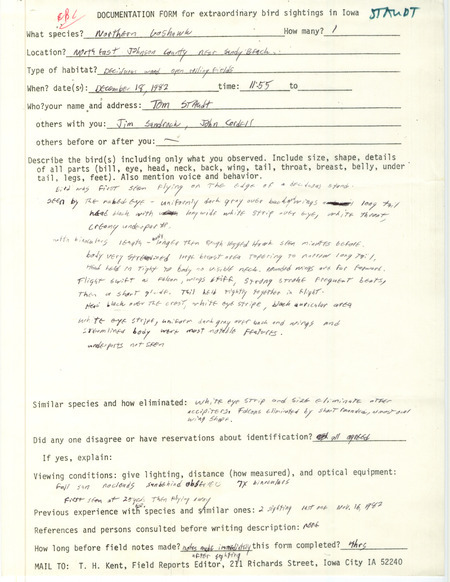 DOCUMENTATION FORM for extraordinary bird sightings in Iowa STAUDT
What species? Northern Goshawk How many? 1
Location? Northeast Johnson County near Sandy Beach
Type of habitat? Deciduous woods open rolling fields
When? date(s): December 18, 1982 time: 11:55 to
Who?your name and address: Tom Staudt
others with you: Jim Sandrock, John Cordell
others before or after you: —
Describe the bird(s) including only what you observed. Include size, shape, details
of all parts (bill, eye, head, neck, back, wing, tail, throat, breast, belly, under
tail, legs, feet). Also mention voice and behavior.
bird was first seen flying on the edge of a deciduous
seen by the naked eye - uniformly dark gray over back & wings long tail
head black with white strip over eye, white throat,
creamy underparts.
with binoculars length - longer than Rough legged Hawk seen minutes before.
body very streamlined large breast area tapering to narrow long tail,
Head held in tight to body no visible neck. Rounded wings are far forward.
Flight swift as falcon, wings stiff, strong stroke frequent beats,
Then a short glide. Tail held tightly together in flight.
Head black over the crest, white eye stripe, black auricular area
White eye stripe, uniform dark gray over back and wings and
streamlined body were most notable features.
underparts not seen
Similar species and how eliminated: White eye strip and size eliminate other
accipiters. Falcons eliminated by short rounded, and
wing shape.
Did any one disagree or have reservations about identification? all agreed
If yes, explain:
Viewing conditions: give lighting, distance (how measured), and optical equipment:
Full sun no clouds sun behind 7x binoculars
First seen at 25 yds, then flying away
Previous experience with species and similar ones: 2 sighting last one Dec. 16, 1982
References and persons consulted before writing description: None
How long before field notes made? notes made immediately this form completed? 7hrs
after sighting
MAIL TO: T. H. Kent, Field Reports Editor, 211 Richards Street, Iowa City IA 52240